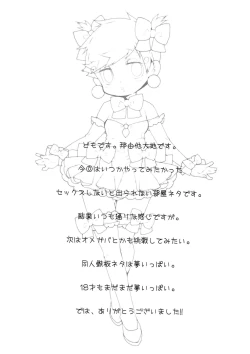 どもです。理由他大地です。
今回はいつかやってみたかった
セックスしないと出られない部屋ネタです。
結果いつも通りな感じですが。
次はオメガバとかも挑戦してみたい。
同人鉄板ネタは夢いっぱい。
18才もまだまだ夢いっぱい。
では、ありがとうございました!!